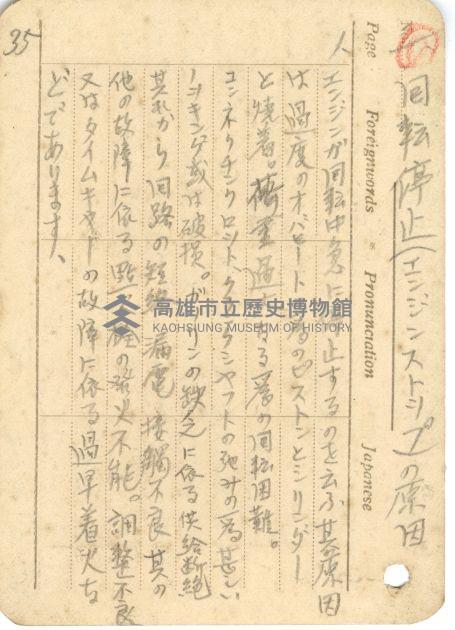 回転停止(エンジンストップ)の原因
人
エンジンが回転中急に停止するのを云ふ其原因
は過度のオバヒートの為のピストンとシリンダー
と焼着。荷重過ぎる為の回転困難。
コンネクチングロットクランクシャフトの弛みの為甚しい
ノッキング或は破損。ガソリンの缺乏に依る供給断絶
其れから回路の短絡漏電接觸不良其の
他の故障に依る點火栓の発火不能。調整不良
又はタイムギヤーの故障に依る過早着火な
どであります、
35
Page Foreignwords Pronunciation Japanese
高雄市立歷史博物館
KAOHSIUNG MUSEUM OF HISTORY